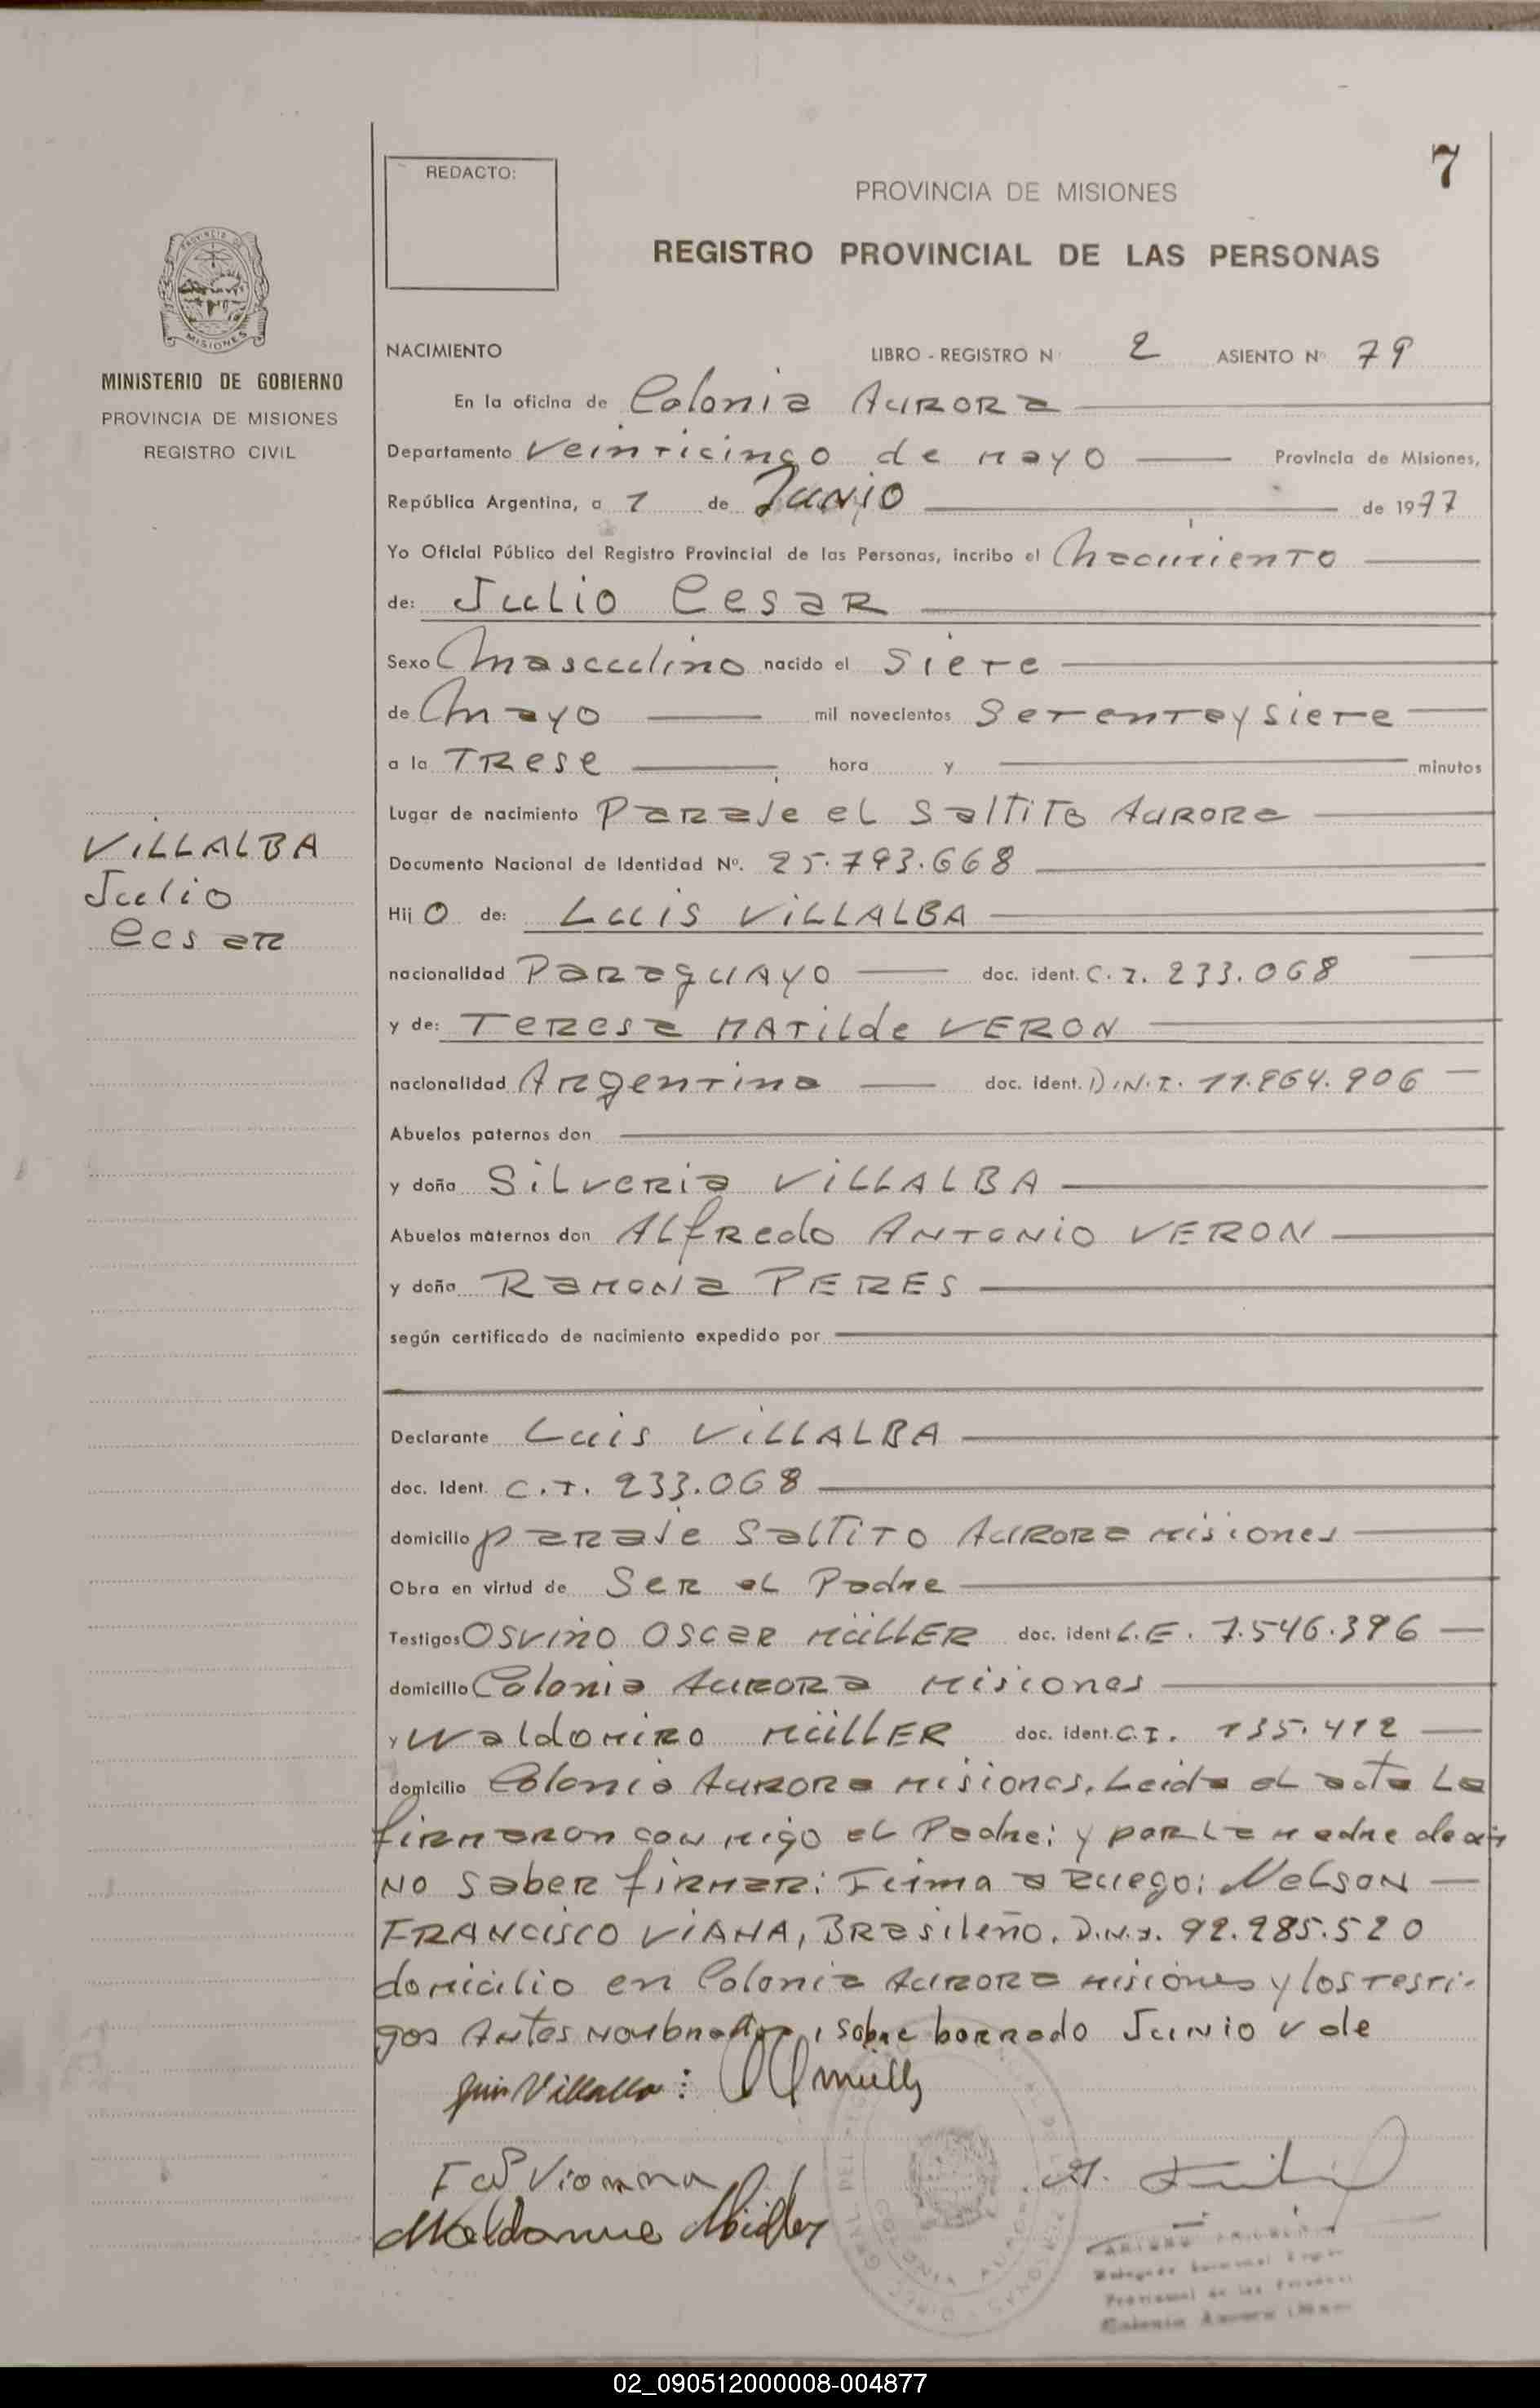 7
REDACTO:
PROVINCIA DE MISIONES
REGISTRO PROVINCIAL DE LAS PERSONAS
PROVINCIA DE
MISIONES
MINISTERIO DE GOBIERNO
PROVINCIA DE MISIONES
REGISTRO CIVIL
NACIMIENTO LIBRO - REGISTRO N° 2 ASIENTO N° 79
En la oficina de Colonia AURORA
Departamento Veinticinco de mayo Provincia de Misiones,
República Argentina, a 1 de Junio de 1977
Yo Oficial Público del Registro Provincial de las Personas, incribo el Nacimiento
de: Julio Cesar
Sexo Masculino nacido el Siete
de Mayo mil novecientos Setentaysiete
a la Trese hora y minutos
Lugar de nacimiento Paraje el Saltito Aurora
Documento Nacional de Identidad Nº. 25.793.668
VILLALBA
Julio
Cesar
Hij O de: Luis VILLALBA
nacionalidad Paraguayo doc. ident. C.I. 233.068
y de: Teresa Matilde VERON
nacionalidad Argentina doc. ident. D.N.I. 11.964.906
Abuelos paternos don
y doña Silveria VILLALBA
Abuelos maternos don Alfredo Antonio VERON
y doña Ramona PERES
según certificado de nacimiento expedido por
Declarante Luis VILLALBA
doc. Ident. C.I. 233.068
domicilio paraje Saltito Aurora Misiones
Obra en virtud de Ser el Padre
Testigos Osvino Oscar MÜLLER doc. ident L.E. 7.546.396
domicilio Colonia Aurora Misiones
y Waldomiro MÜLLER doc. ident. C.I. 135.412
domicilio Colonia Aurora Misiones. Leida el acta La
firmaron con migo el Padre; y por La madre
No saber firmar: Firma a Ruego: Nelson
FRANCISCO VIANA, Brasileño. D.N.I. 92.285.520
domicilio en Colonia Aurora Misiones y los testi-
gos Antes Nombrados, sobre borrado Junio v de
Luis Villalba
Vianna
COLONIA AURORA
Colonia Aurora
02_090512000008-004877